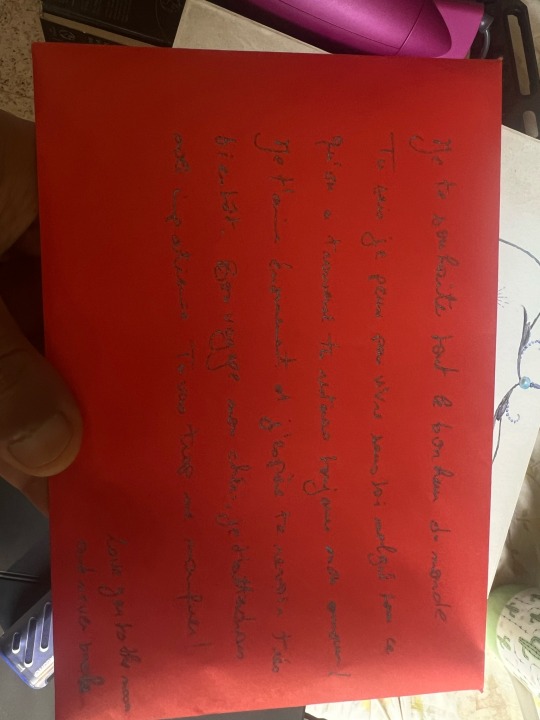 Je te souhaite tout le bonheur du monde.
Tu sais je peux pas vivre sans toi malgré tous ce
qu'on a traversé tu restera toujours mon amour!
Je t'aime énormement et j'espère te revoir très
bientôt. Bon voyage mon chéri, je t'attendrai
avec impatience. Tu vas trop me manquer!
Love you to the moon
and never back